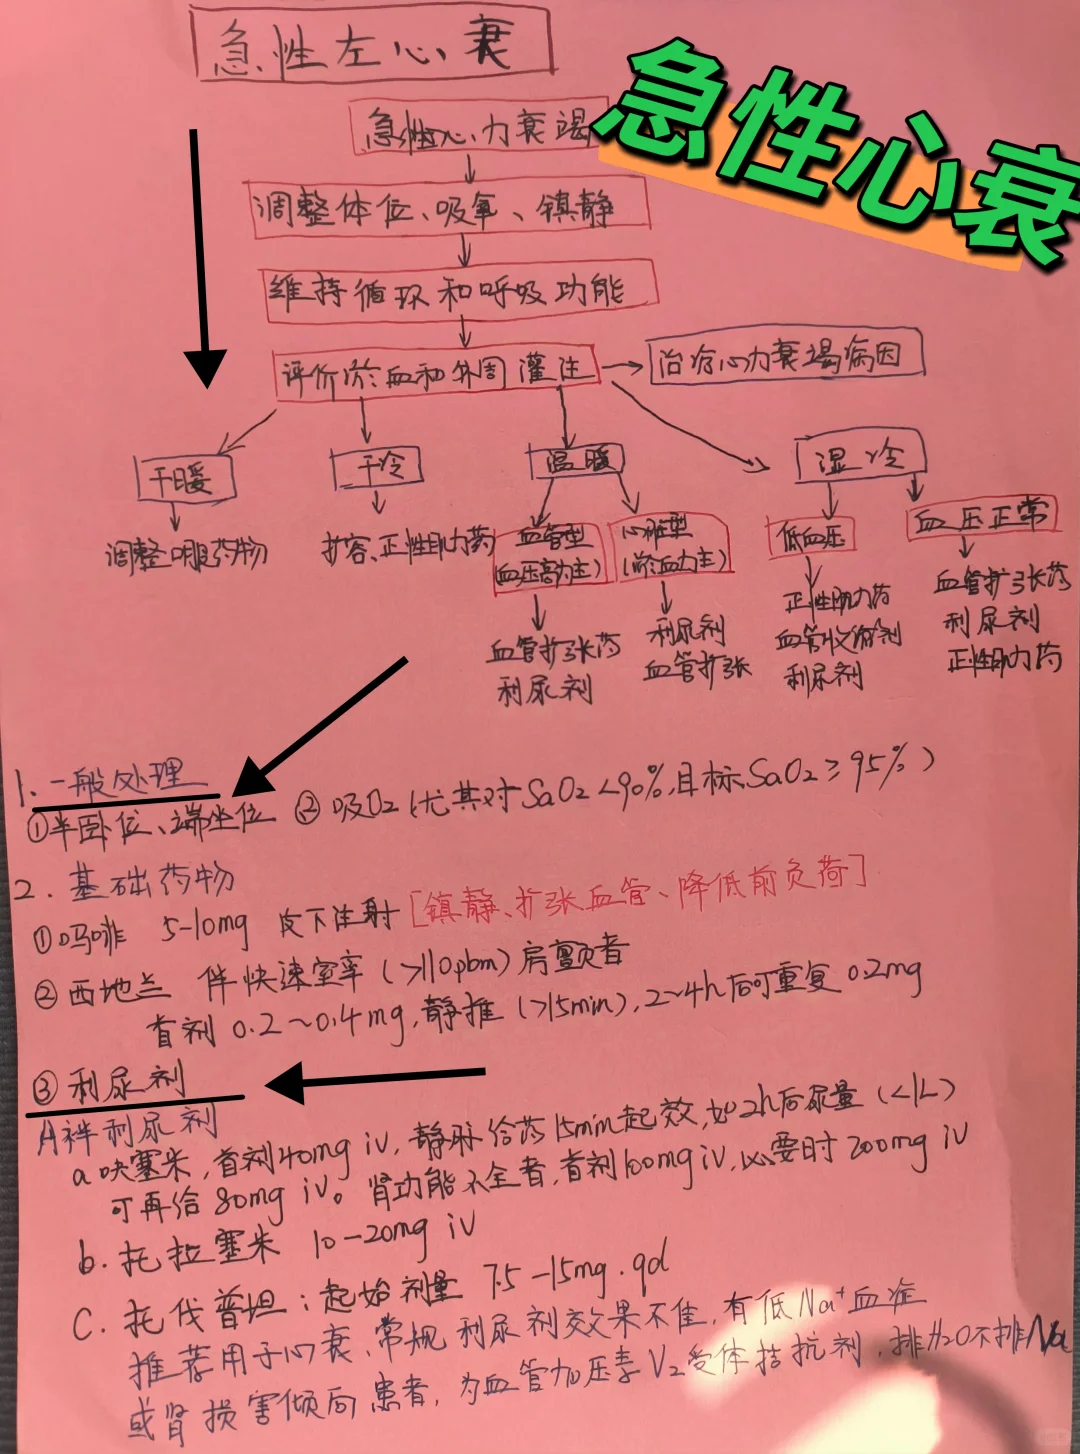 急性左心衰
急性心衰
急性心力衰竭
调整体位、吸氧、镇静
维持循环和呼吸功能
评价淤血和外周灌注
治疗心力衰竭病因
干暖
干冷
温暖
湿冷
调整口服药物
扩容、正性肌力药
血管型
(血压高为主)
心脏型
(淤血为主)
低血压
血压正常
血管扩张药
利尿剂
利尿剂
血管扩张
正性肌力药
血管收缩剂
利尿剂
血管扩张药
利尿剂
正性肌力药
1. 一般处理
①半卧位、端坐位 ② 吸O2 (尤其对SaO2<90%,目标SaO2≥95%)
2. 基础药物
①吗啡 5-10mg 皮下注射 [镇静、扩张血管、降低前负荷]
②西地兰 伴快速室率(>110pbm)房颤者
首剂 0.2~0.4mg,静推(>15min),2~4h后可重复0.2mg
③利尿剂
A袢利尿剂
a呋塞米,首剂40mg iv,静脉给药15min起效,如2h后尿量(<1L)
可再给80mg iv。肾功能不全者,首剂100mg iv,必要时200mg iv
b. 托拉塞米 10-20mg iv
C. 托伐普坦:起始剂量 7.5-15mg.qd
推荐用于心衰、常规利尿剂效果不佳,有低Na+血症
或肾损害倾向患者,为血管加压素V2受体拮抗剂,排H2O不排Na